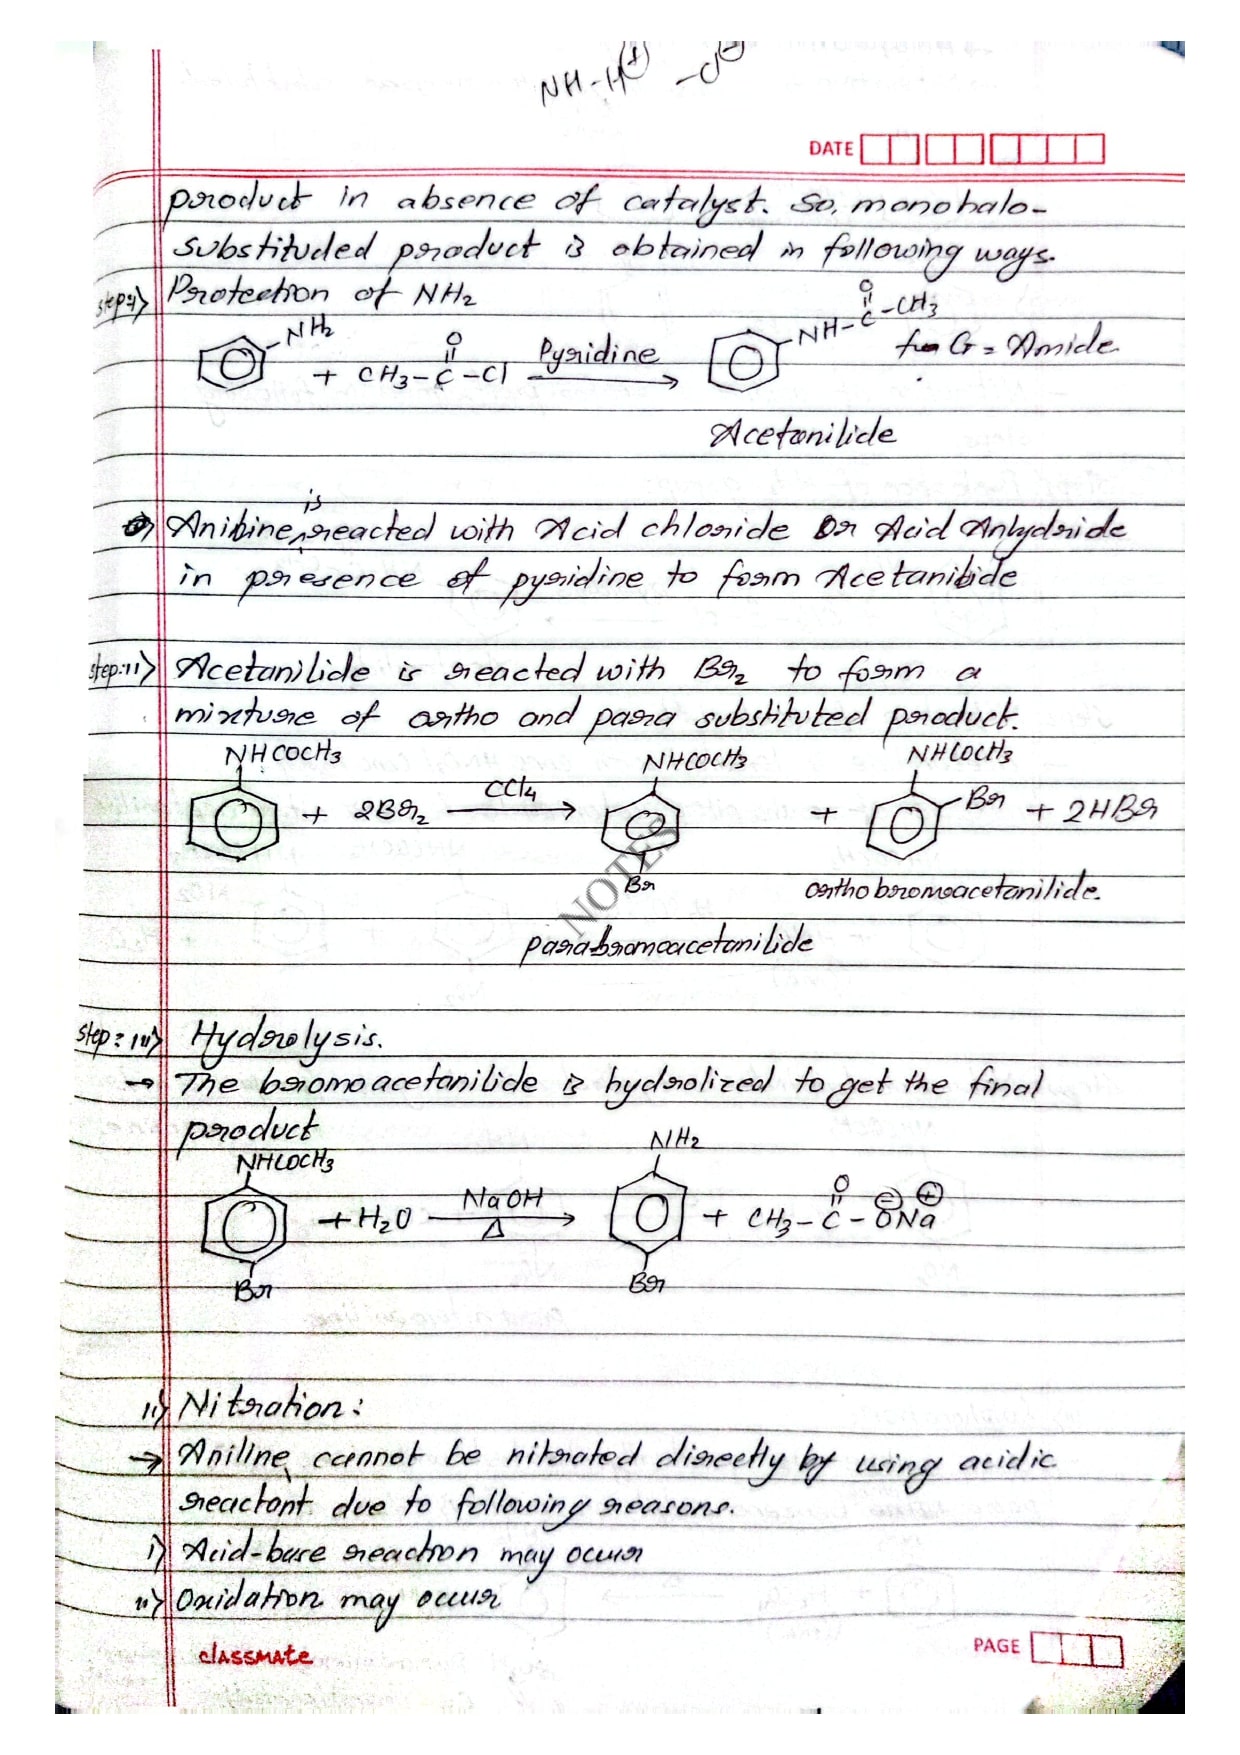 NH-H⊕ -Cl⊖
DATE
product in absence of catalyst. So, monohalo-
substituded product is obtained in following ways.
step:i) Protection of NH2
NH2 + CH3-C(=O)-Cl Pyridine → NH-C(=O)-CH3 G = Amide
Acetanilide
is
Aniline, reacted with Acid chloride Or Acid Anhydride
in presence of pyridine to form Acetanilide
step:ii) Acetanilide is reacted with Br2 to form a
mixture of ortho and para substituted product.
NHCOCH3 NHCOCH3 NHCOCH3
+ 2Br2 CCl4 → + Br + 2HBr
Br orthobromoacetanilide.
NOTES
parabromoacetanilide
step: iii) Hydrolysis.
→ The bromoacetanilide is hydrolized to get the final
product
NHCOCH3 NH2
+ H2O NaOH Δ → + CH3-C(=O)-O⊖Na⊕
Br Br
ii) Nitration:
→ Aniline cannot be nitrated directly by using acidic
reactant due to following reasons.
i) Acid-base reaction may occur
ii) Oxidation may occur
classmate PAGE